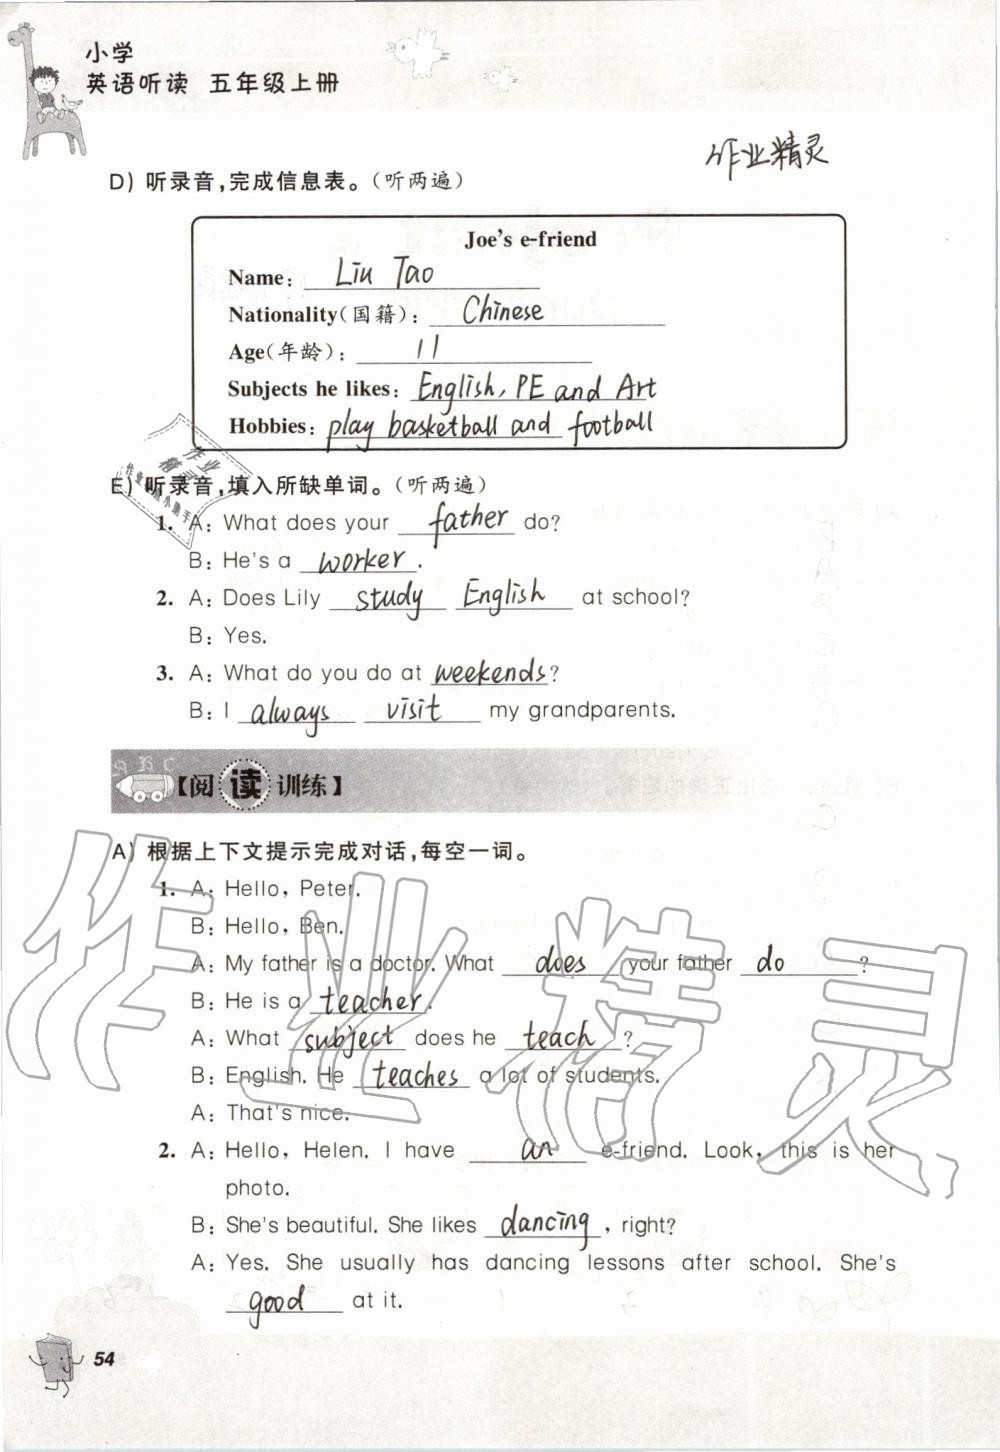 小学
英语听读 五年级上册
作业精灵
D) 听录音,完成信息表。(听两遍)
Joe's e-friend
Name: Liu Tao
Nationality(国籍): Chinese
Age(年龄): 11
Subjects he likes: English, PE and Art
Hobbies: play basketball and football
E) 听录音,填入所缺单词。(听两遍)
1. A: What does your father do?
B: He's a worker.
2. A: Does Lily study English at school?
B: Yes.
3. A: What do you do at weekends?
B: I always visit my grandparents.
【阅读训练】
A) 根据上下文提示完成对话,每空一词。
1. A: Hello, Peter.
B: Hello, Ben.
A: My father is a doctor. What does your father do?
B: He is a teacher.
A: What subject does he teach?
B: English. He teaches a lot of students.
A: That's nice.
2. A: Hello, Helen. I have an e-friend. Look, this is her
photo.
B: She's beautiful. She likes dancing, right?
A: Yes. She usually has dancing lessons after school. She's
good at it.
54
作业精灵
作业
精灵